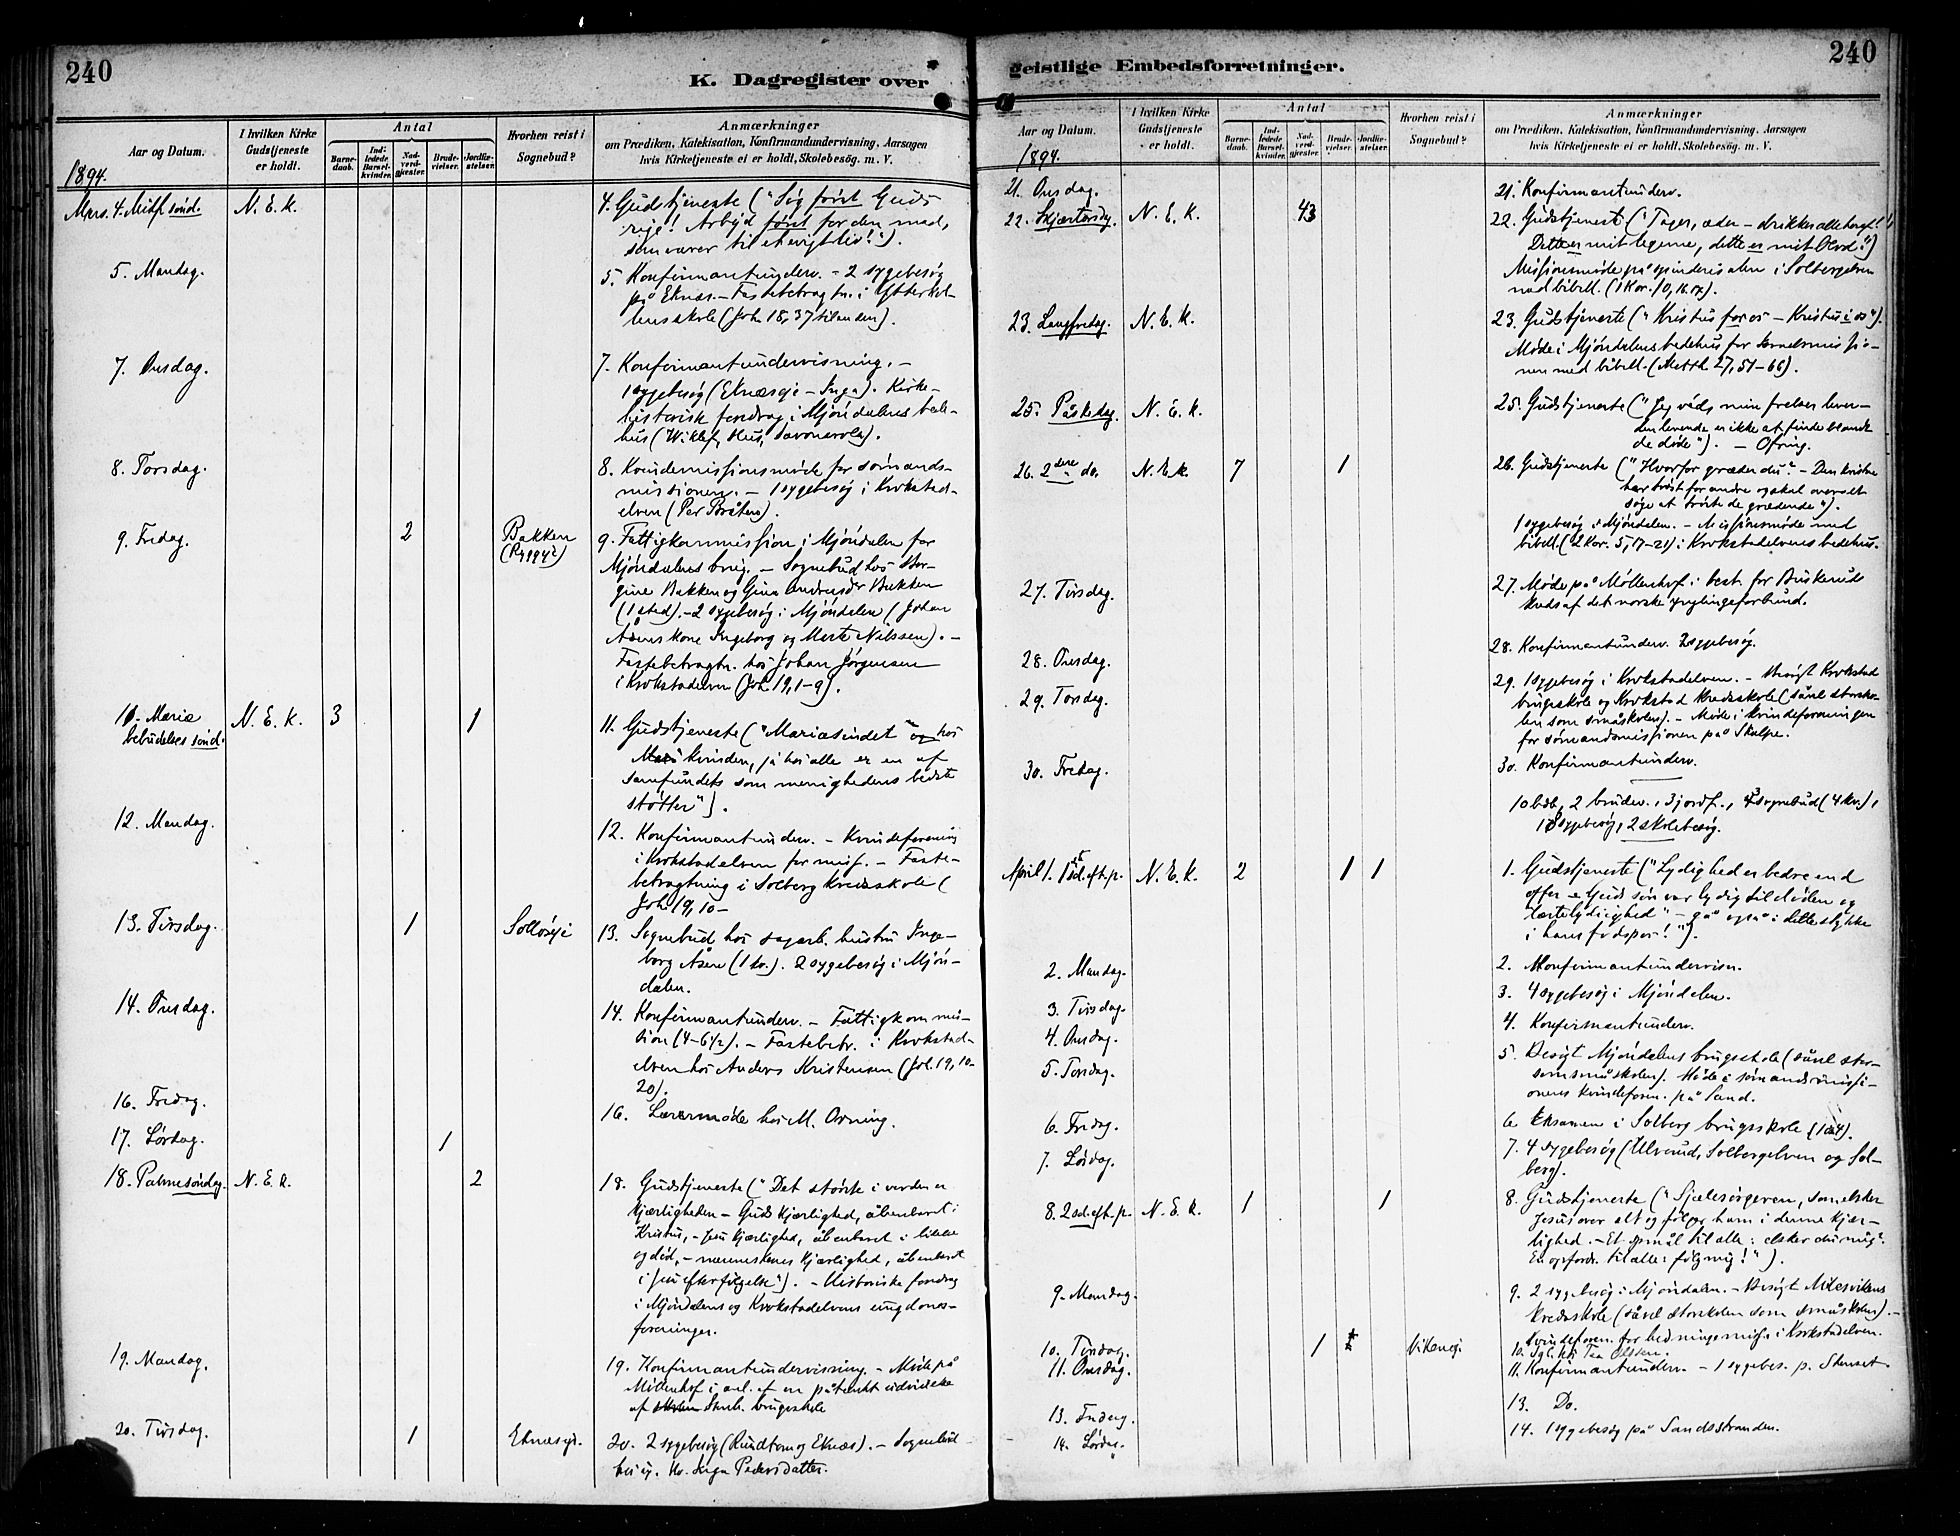 240
K. Dagregister over
Aar og Datum.
I hvilken Kirke
Gudstjeneste
er holdt.
Antal
Barne-
daab.
Ind-
ledede
Barsel-
kvinder.
Nad-
verd-
gjester.
Brude-
vielser.
Jordfæ-
stelser.
Hvorhen reist i
Sognebud?
Anmærkninger
om Prædiken, Katekisation, Konfirmandundervisning, Aarsagen
hvis Kirketjeneste ei er holdt, Skolebesög. m. V.
1894.
Mars. 4. Midtf. sönd. N. E. K.
4. Gudstjeneste ("Søg først Guds
rige! Arbejd først for den mad,
som varer til et evigt liv!").
5. Mandag.
5. Konfirmantunderv. – 2 sygebesög
på Eknæs. – Fastebetragtn. i Ytterkol-
lens skole (Joh. 18, 37 til enden).
7. Onsdag.
7. Konfirmantundervisning. –
1 sygebesög (Eknæseje – Inga). Kirke-
historisk foredrag i Mjöndalens bede-
hus (Wiklef, Hus, Savonarola).
8. Torsdag.
8. Kvindemissionsmöde for sömands-
missionen. – 1 sygebesög i Krokstad-
elven (Per Bråten).
9. Fredag. 2 Bakken
(Rygge)
9. Fattigkommission i Mjöndalen for
Mjöndalens brug. – Sognebud hos
Bakken og Gina Andersdr Bakken
(1 sted). – 2 sygebesög i Mjöndalen (Johan
Åsens kone Ingeborg og Marte Nilssen). –
Fastebetragtn. hos Johan Jørgensen
i Krokstadelven (Joh. 19, 1–9).
Mariæ
bebudelses sönd. N. E. K. 3 1
11. Gudstjeneste ("Mariasindet hos
kvinden, ja hos alle er en af
samfundets som menighedens bedste
støtter").
12. Mandag.
12. Konfirmantunderv. – Kvindeforening
i Krokstadelven for miss. – Faste-
betragtning i Solberg kredsskole (
Joh. 19, 10–
13. Tirsdag. 1
13. Sognebud hos hustru Inge-
borg Åsen (1 kv.). 2 sygebesög i Mjön-
dalen.
14. Onsdag.
14. Konfirmantunderv. – Fattigkommis-
sion (4–6½). – Fastebetr. i Krokstad-
elven hos Anders Kristensen (Joh. 19, 10–
20).
16. Fredag.
16. Lærermøde hos M. Orning.
17. Lördag. 1
18. Palmesöndag. N. E. K. 2
18. Gudstjeneste ("Det største i verden er
kjærligheden – Guds kjærlighed, åbenbaret i
Kristus, – Jesu kjærlighed, åbenbaret i lidelse
og död, – menneskenes kjærlighed, åbenbaret
i Jesu efterfølgelse"). – Historiske foredrag
i Mjöndalens og Krokstadelvens ungdoms-
foreninger.
19. Mandag.
19. Konfirmantundervisning. – Möde på
Möllenhof i anl. af en påtænkt udvidelse
af brugsskole
20. Tirsdag. 1 Eknæsej.
20. 2 sygebesög (Rundtom og Eknæs). – Sognebud
hos Inga Pedersdatter.
240
geistlige Embedsforretninger.
Aar og Datum.
I hvilken Kirke
Gudstjeneste
er holdt.
Antal
Barne-
daab.
Ind-
ledede
Barsel-
kvinder.
Nad-
verd-
gjester.
Brude-
vielser.
Jordfæ-
stelser.
Hvorhen reist i
Sognebud?
Anmærkninger
om Prædiken, Katekisation, Konfirmandundervisning, Aarsagen
hvis Kirketjeneste ei er holdt, Skolebesög. m. V.
1894.
21. Onsdag.
21. Konfirmantunderv.
22. Skjærtorsdag. N. E. K. 43
22. Gudstjeneste ("Tager, æder – drikker alle heraf!
Dette er mit legeme, dette er mit blod!")
Missionsmøde på spinderisalen i Solbergelven
med bibell. (1 Kor. 10, 16.17).
23. Langfredag. N. E. K.
23. Gudstjeneste ("Kristus for os – Kristus i os").
Møde i Mjöndalens bedehus for Israelsmissio-
nen med bibell. (Matth. 27, 57–66).
25. Påskedag. N. E. K.
25. Gudstjeneste ("Jeg véd, min frelser lever –
den levende er ikke at finde blandt
de døde"). – Ofring.
26. 2den do. N. E. K. 7 1
26. Gudstjeneste ("Hvorfor græder du? – Den kristne
har trøst for andre og skal overalt
søge at trøste de grædende").
1 sygebesög i Mjöndalen. – Missionsmøde med
bibell. (2 Kor. 5, 17–21) i Krokstadelvens bedehus.
27. Tirsdag.
27. Møde på Möllenhof i best. for Buskeruds
kreds af det norske ynglingeforbund.
28. Onsdag.
28. Konfirmantunderv. 2 sygebesög.
29. Torsdag.
29. 1 sygebesög i Krokstadelven. – Besögt Krokstad
brugsskole og Krokstad kredsskole (såvel storsko-
len som småskolen). – Møde i kvindeforeningen
for sömandsmissionen på Skalpe.
30. Fredag.
30. Konfirmantunderv.
10 bdb, 2 brudev., 3 jordf., sognebud (4 kv.),
sygebesög, 2 skolebesög.
April 1. 1 sd. eft. p. N. E. K. 2 1 1
1. Gudstjeneste ("Lydighed er bedre end
offer – Guds søn var lydig til døden og
lærte lydighed" – gå også i dette stykke
i hans fodspor!").
2. Mandag.
2. Konfirmantundervisn.
3. Tirsdag.
3. 4 sygebesög i Mjöndalen.
4. Onsdag.
4. Konfirmantunderv.
5. Torsdag.
5. Besögt Mjöndalens brugsskole (såvel stor-
som småskolen). Møde i sömandsmissi-
onens kvindeforen. på Sand.
6. Fredag.
6. Eksamen i Solberg brugsskole
7. Lördag.
7. 4 sygebesög (Ulverud, Solbergelven og Sol-
berg).
8. 2 sd. eft. p. N. E. K. 1 1
8. Gudstjeneste ("Sjælesørgeren, som elsker
Jesus over alt og følger ham i denne kjær-
lighed. – Et spørsmål til alle: elsker du mig?
En opfordr. til alle: følg mig!").
9. Mandag.
9. 2 sygebesög i Mjöndalen. – Besögt Milesvikens
kredsskole (såvel storskolen som småskolen). –
Kvindeforen. for hedningemiss. i Krokstadelven.
10. Tirsdag. 1 Vikenej.
10. Sgb. hos Tea Olsen.
11. Onsdag.
11. Konfirmantunderv. – 1 sygebes. p. Stenset.
13. Fredag.
13. Do.
14. Lördag.
14. 1 sygebesög på Sandsstranden.